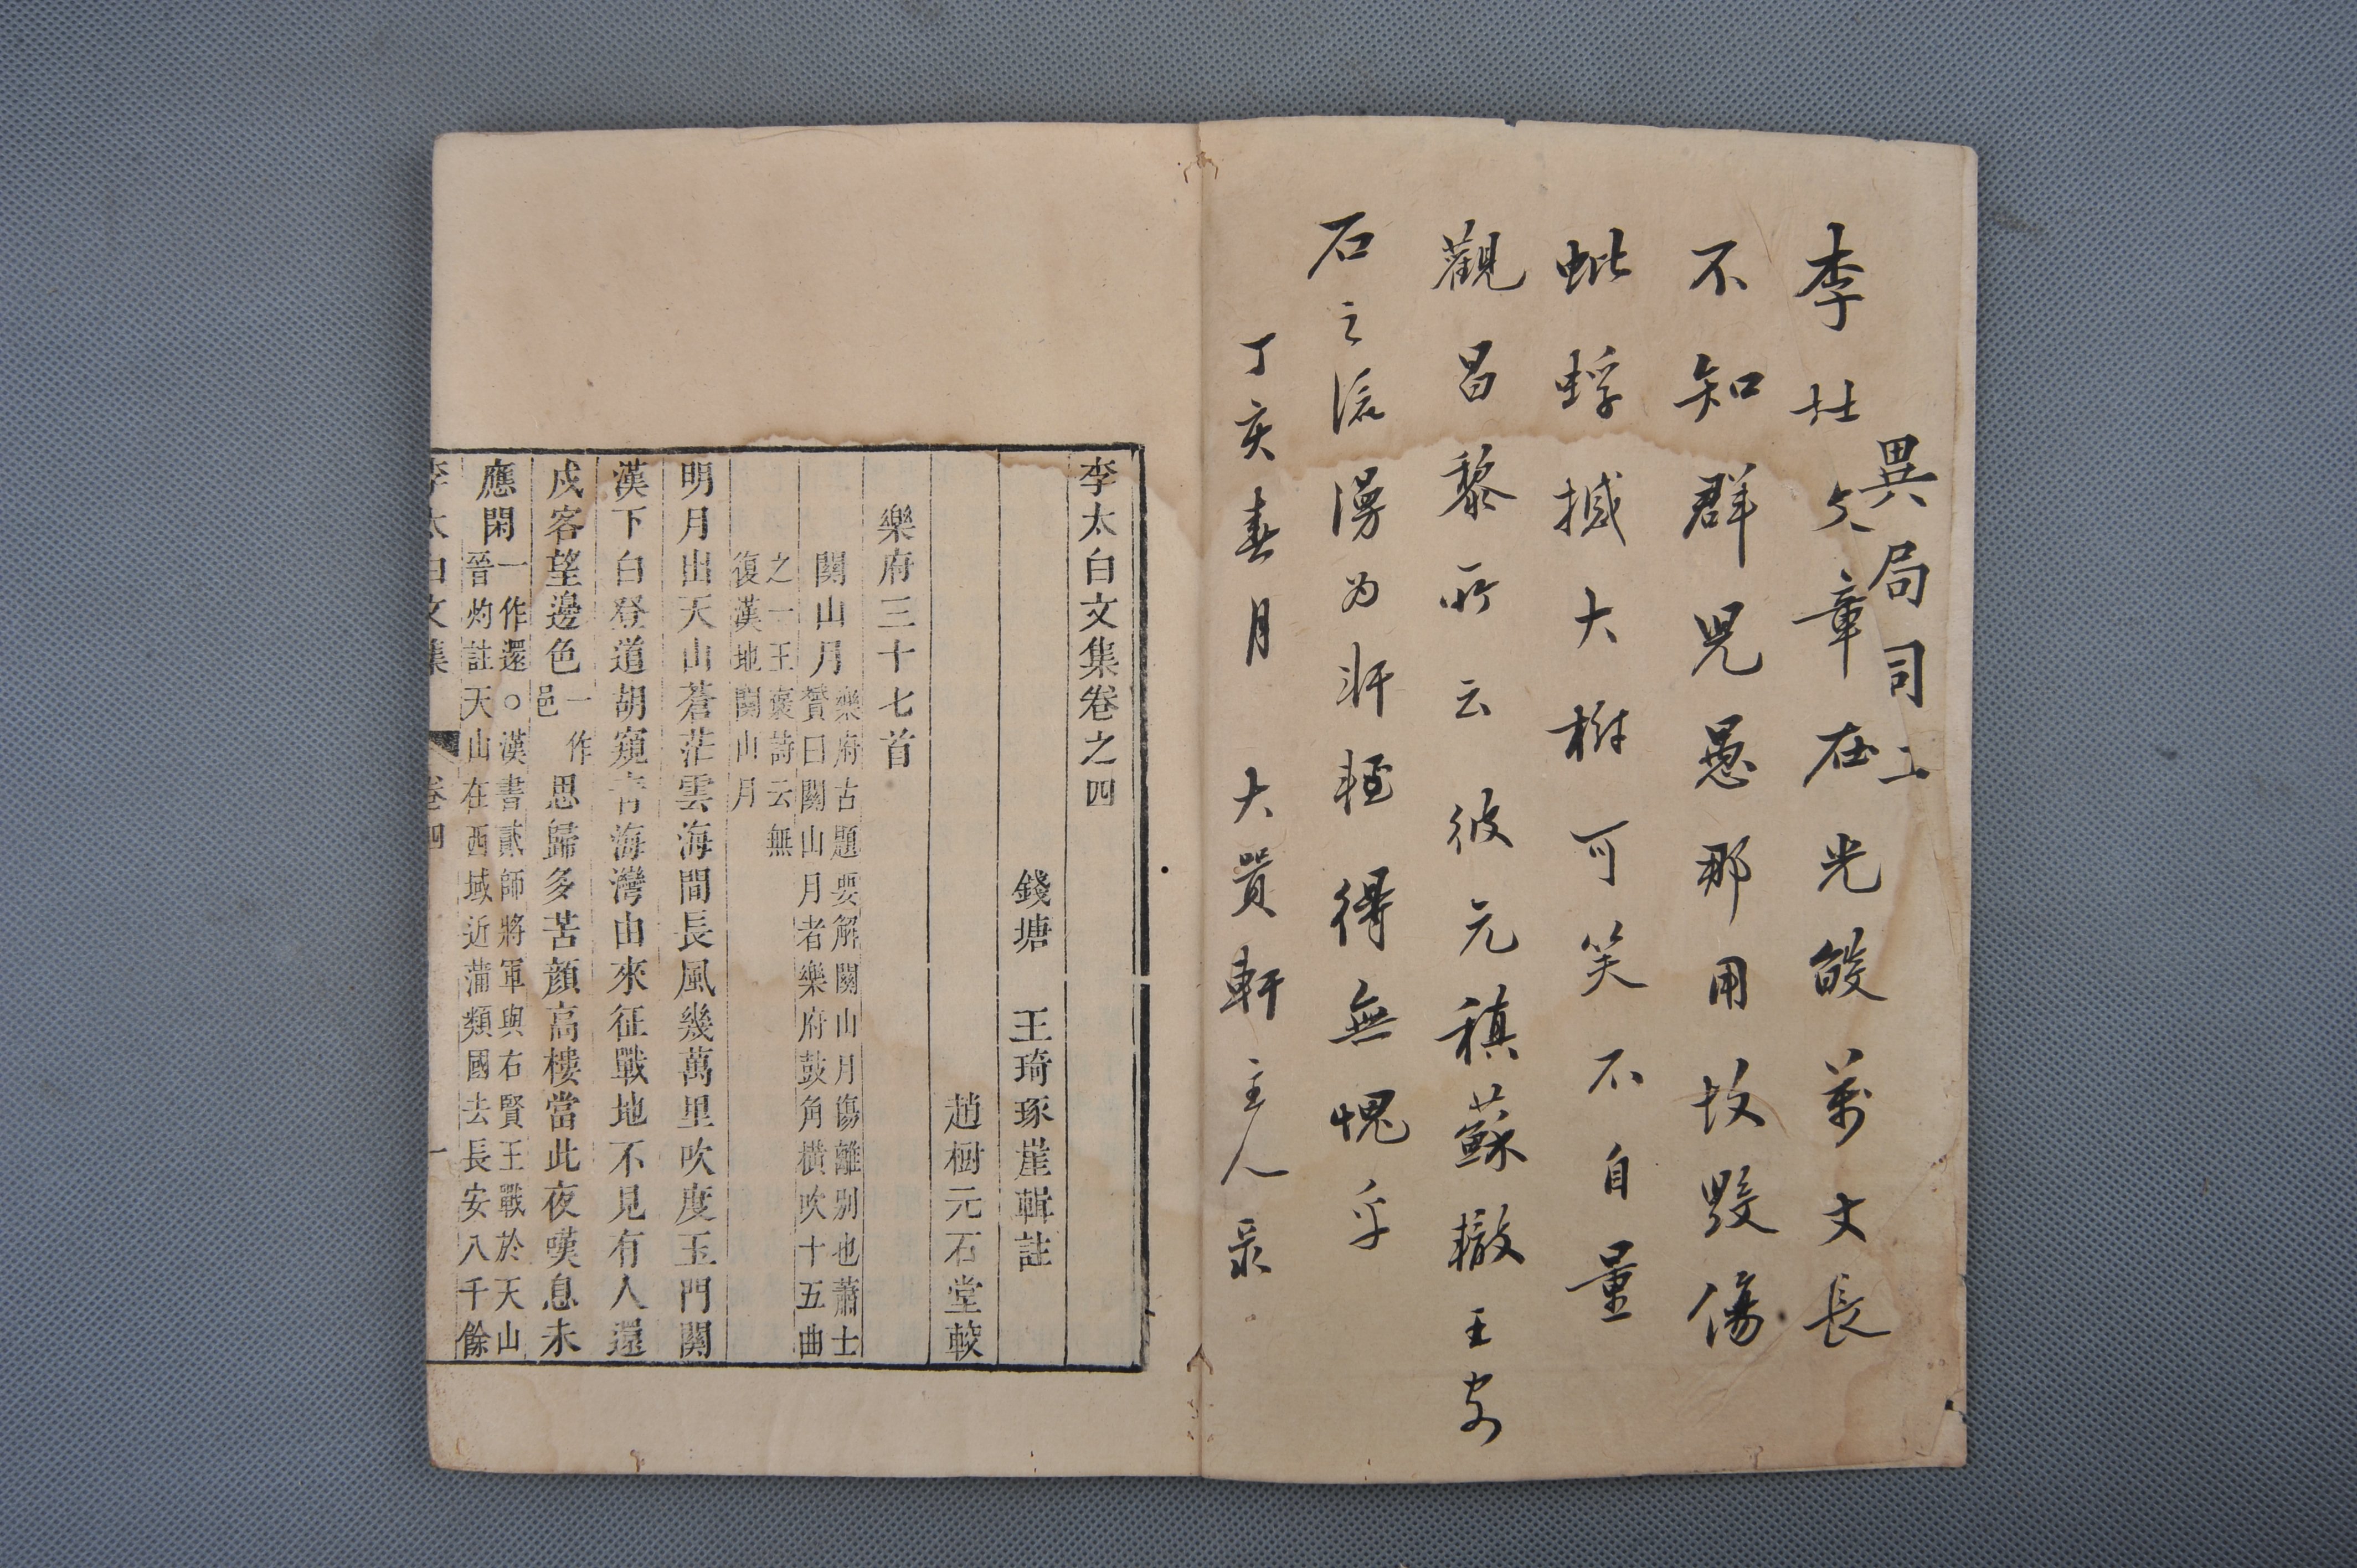 異局司工
李杜文章在光燄萬丈長
不知羣兒愚那用故毀傷
蚍蜉撼大樹可笑不自量
觀昌黎所云彼元稹蘇轍王安
石之流漫為軒輊得無愧乎
丁亥春月 大貫軒主人录
李太白文集卷之四
錢塘 王琦琢崖輯註
趙樹元石堂較
樂府三十七首
關山月
樂府古題要解關山月傷離別也蕭士
贇曰關山月者樂府鼓角橫吹十五曲
之一王褒詩云無
復漢地關山月
明月出天山蒼茫雲海間長風幾萬里吹度玉門關
漢下白登道胡窺青海灣由來征戰地不見有人還
戍客望邊色一作邑思歸多苦顏高樓當此夜嘆息未
應閑
一作還○漢書貳師將軍與右賢王戰於天山
晉灼註天山在西域近蒲類國去長安八千餘
李太白文集 卷四 一